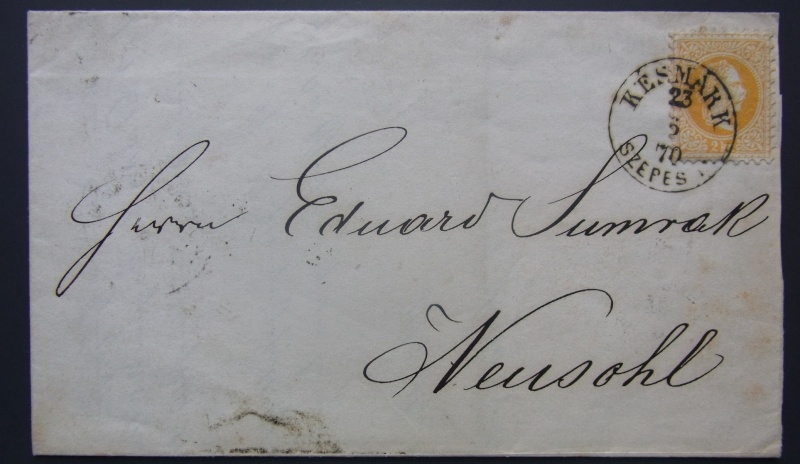 KÉSMÁRK
23
3
70
SZEPES
Herrn Eduard Sumrak
Neusohl